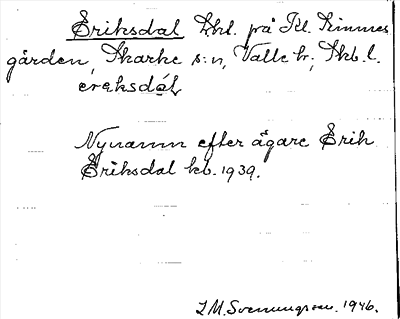 Eriksdal Lht. på Kl. Simmes
gården, Skarke s:n, Valle hr; Skb. l.
ereksdál
Nynamn efter ägare Erik
Eriksdal kb. 1939.
S. M. Svenungsson. 1946.